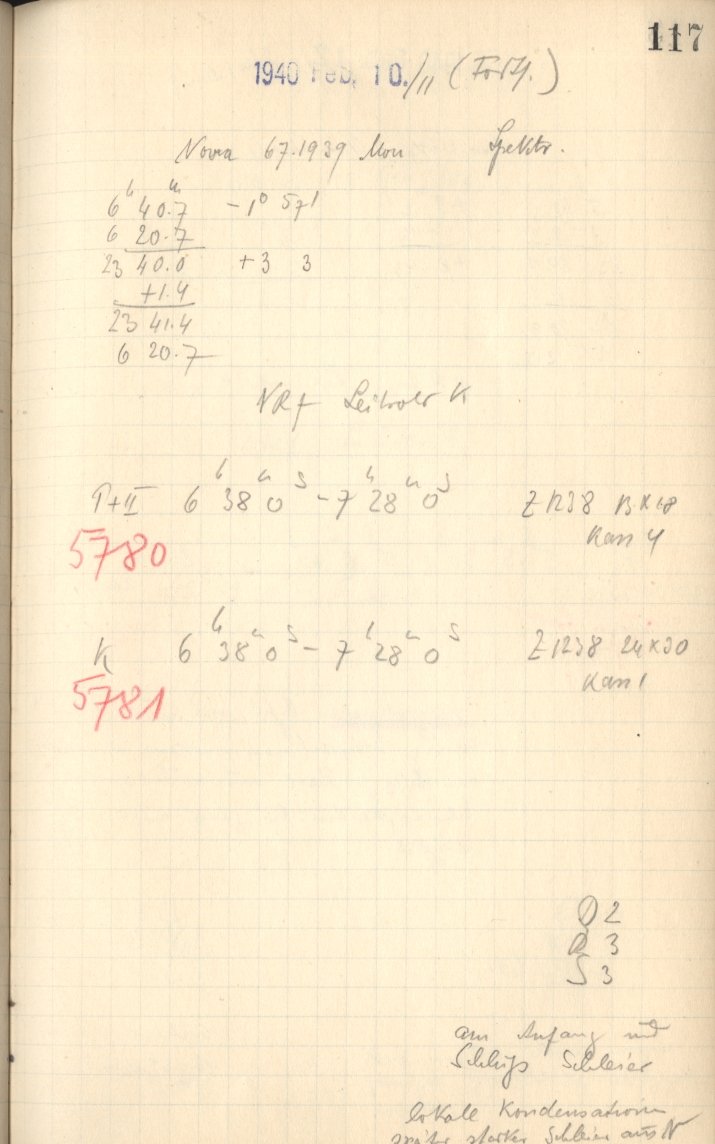 117
1940 Feb. 10./11 (Forts.)
Nova 67.1939 Mon Spektr.
6h 40.7m -1° 57'
6 20.7
23 40.0 +3 3
+1.4
23 41.4
6 20.7
NRf Leitrohr K
I+II 6h 38m 0s - 7h 28m 0s Z1238 13x18
Kass 4
5780
K 6h 38m 0s - 7h 28m 0s Z1238 24x30
Kass 1
5781
D 2
R 3
S 3
am Anfang und
Schluß Schleier
lokale Kondensationen
später starker Schleier aus N